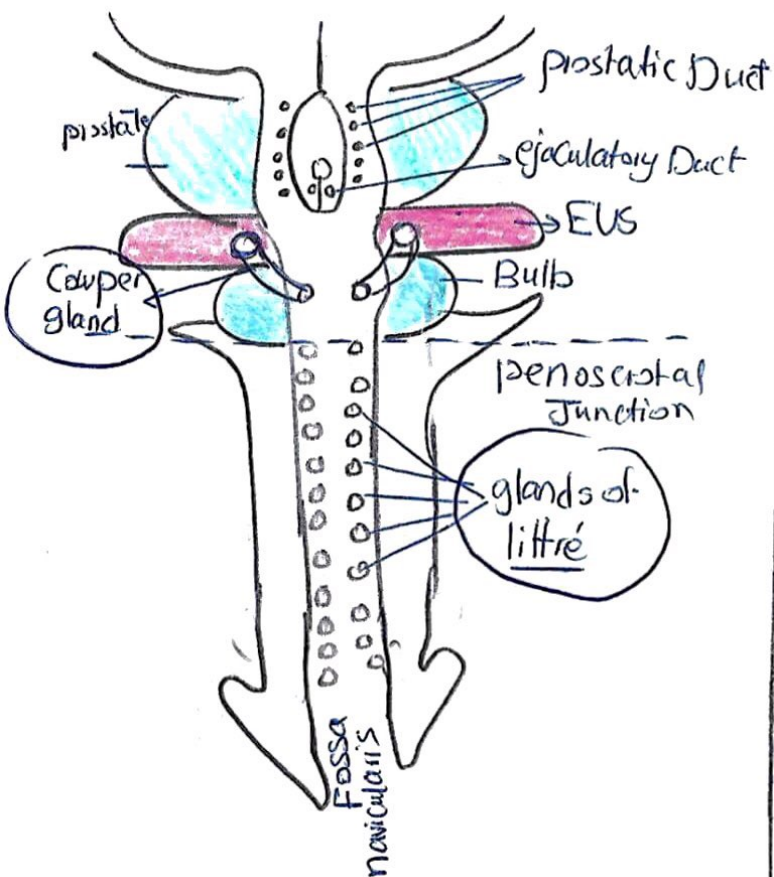 prostatic Duct
prostate
ejaculatory Duct
EUS
Cowper
gland
Bulb
penoscrotal
Junction
glands of
littré
Fossa
navicularis